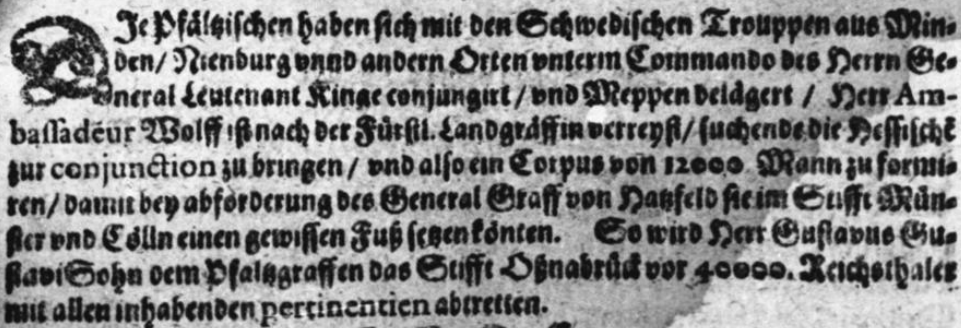 DIe Pfältzischen haben sich mit den Schwedischen Trouppen aus Min-
den/ Nienburg vnnd andern Orten vnterm Commando des Herrn Ge-
neral Leutenant Kinge conjungirt / vnd Meppen belägert / Herr Am-
bassadeur Wolff ist nach der Fürstl. Landgräffin verreyst/ suchende die Hessische
zur conjunction zu bringen / vnd also ein Corpus von 12000. Mann zu formi-
ren/ damit bey abforderung des General Graff von Hatzfeld sie im Stifft Mün-
ster vnd Cölln einen gewissen Fuß setzen könten. So wird Herr Gustavus Gu-
stavi Sohn dem Pfaltzgraffen das Stifft Oßnabrück vor 40000. Reichsthaler
mit allen inhabenden pertinentien abtretten.